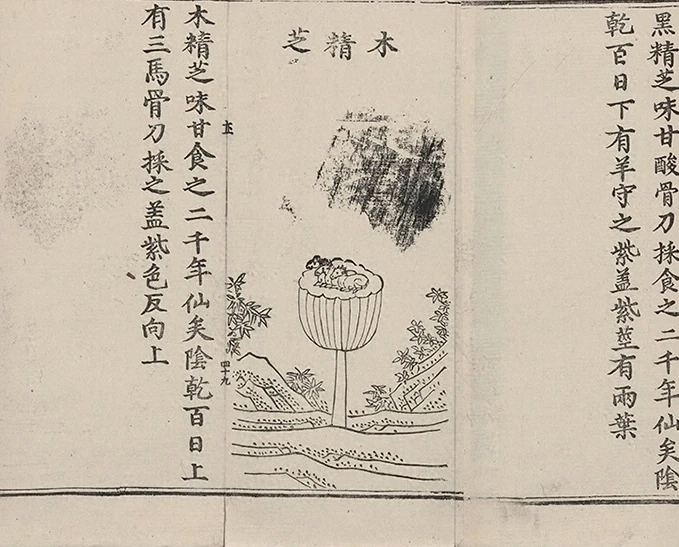 黑精芝味甘酸骨刀採食之二千年仙矣陰
乾百日下有羊守之紫盖紫莖有兩葉
木精芝
四十九
木精芝味甘食之二千年仙矣陰乾百日上
有三馬骨刀採之盖紫色反向上